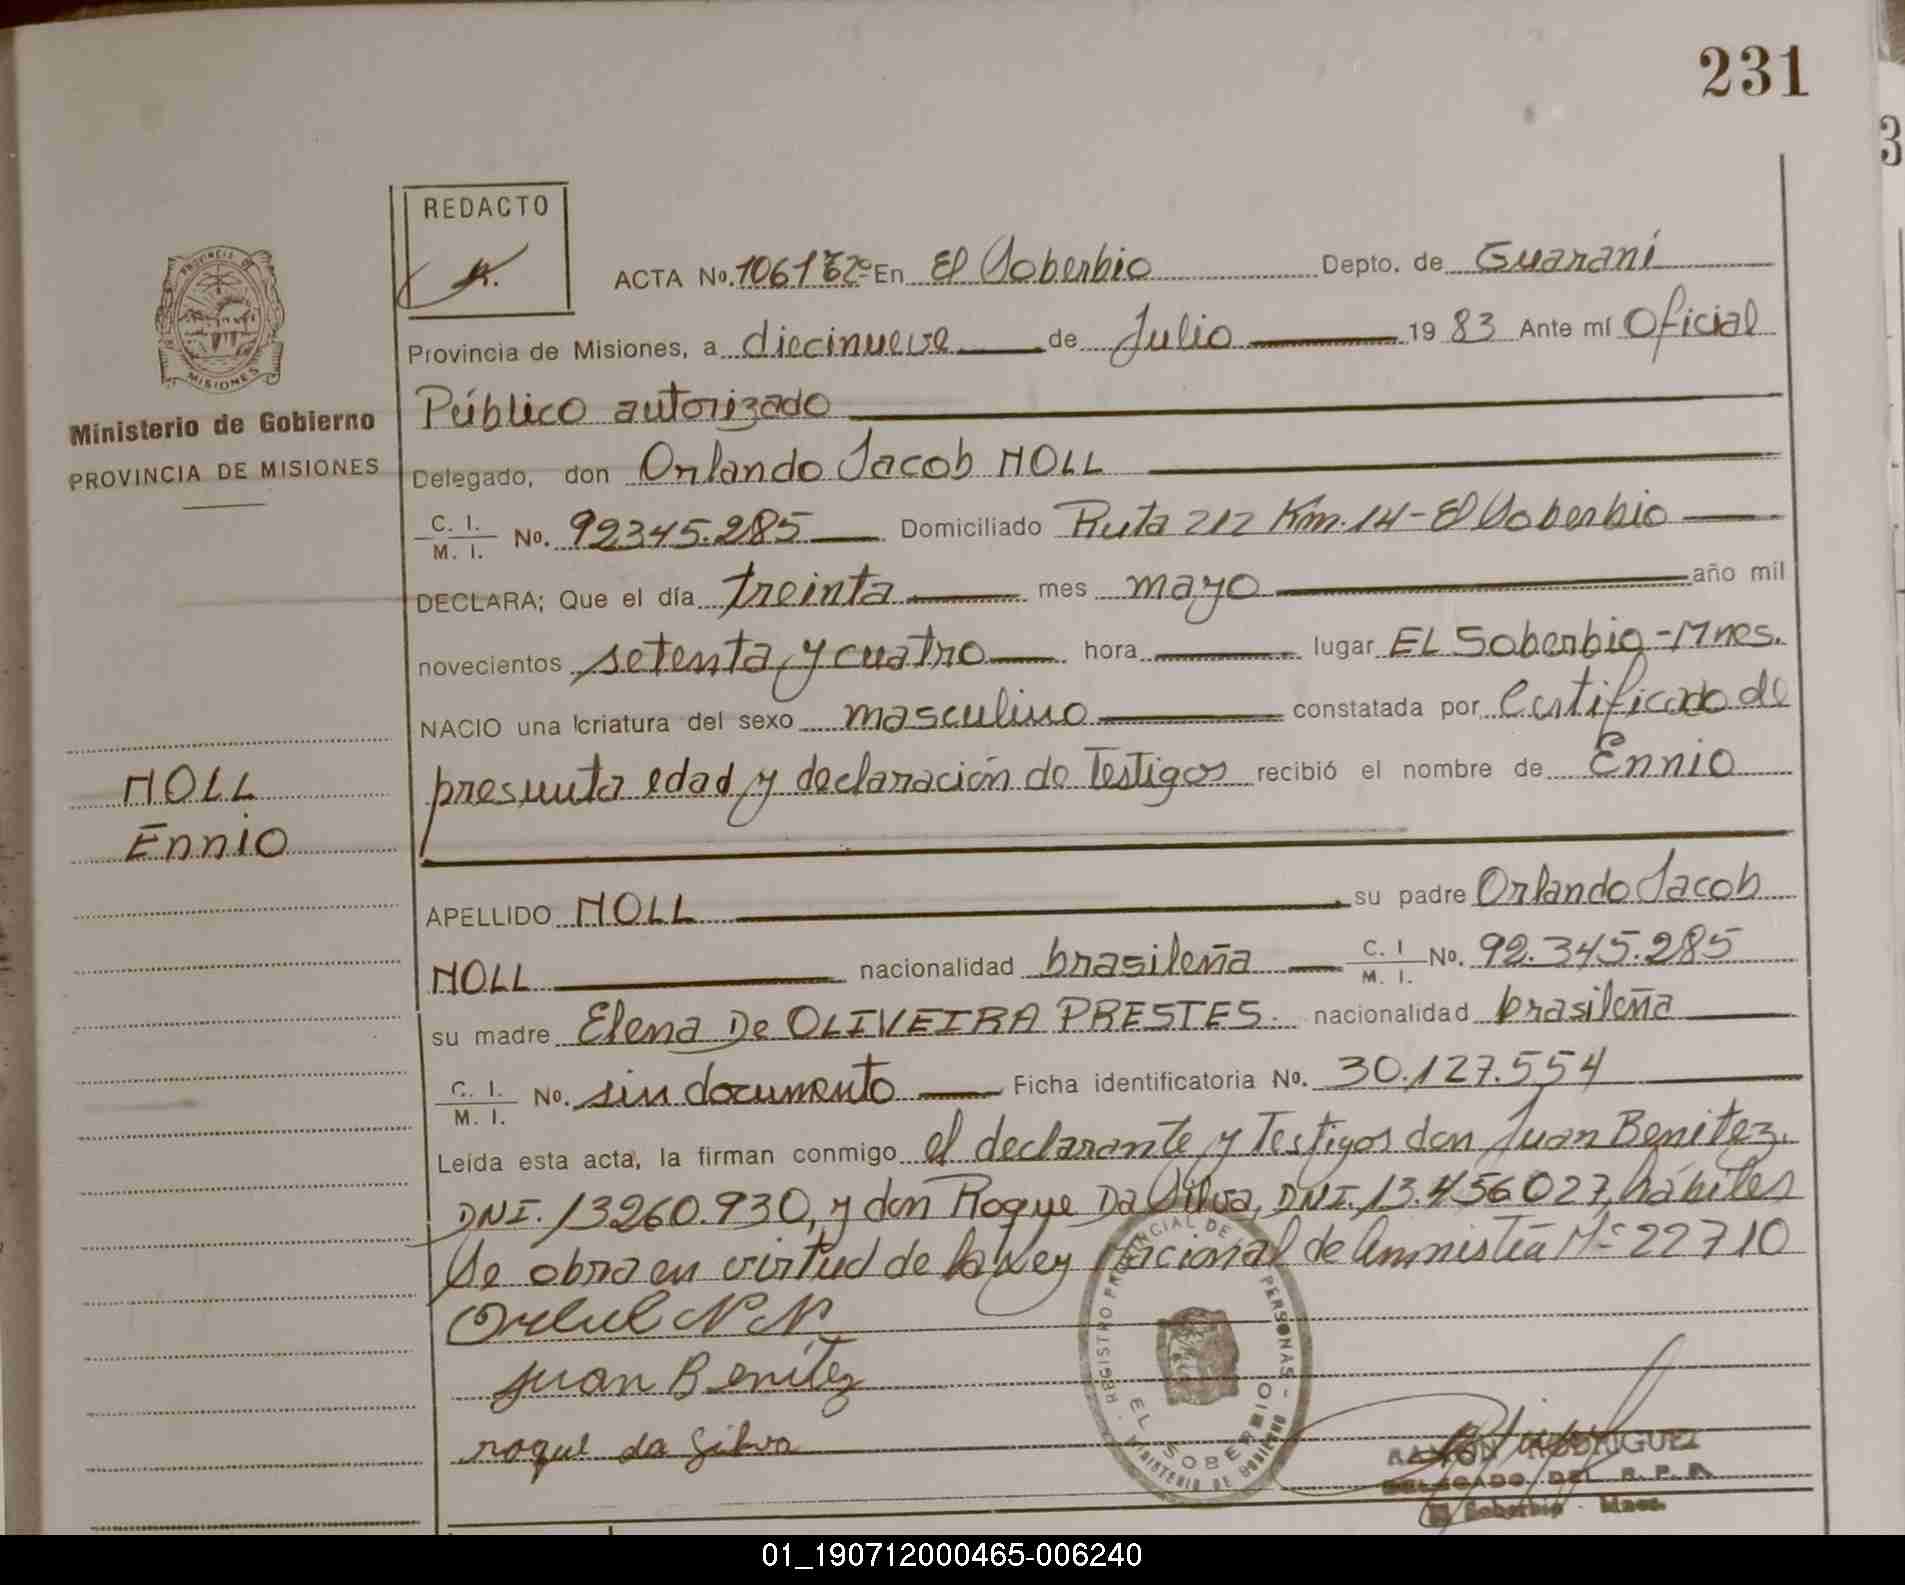 231
3
REDACTO
PROVINCIA DE
MISIONES
Ministerio de Gobierno
PROVINCIA DE MISIONES
ACTA No. 1061 Tº2º En El Soberbio Depto. de Guaraní
Provincia de Misiones, a diecinueve de Julio 1983 Ante mí Oficial
Público autorizado
Delegado, don Orlando Jacob NOLL
C. I. / M. I. No. 92345.285 Domiciliado Ruta 212 Km. 14 - El Soberbio
DECLARA; Que el día treinta mes mayo año mil
novecientos setenta y cuatro hora lugar EL Soberbio - Mnes.
NACIO una criatura del sexo masculino constatada por Certificado de
presunta edad y declaración de Testigos recibió el nombre de Ennio
NOLL
Ennio
APELLIDO NOLL su padre Orlando Jacob
NOLL nacionalidad brasileña C. I / M. I. No. 92.345.285
su madre Elena De OLIVEIRA PRESTES. nacionalidad brasileña
C. I. / M. I. No. sin documento Ficha identificatoria No. 30.127.554
Leída esta acta, la firman conmigo el declarante y Testigos don Juan Benitez,
DNI. 13260.930, y don Roque Da Silva, DNI. 13.456027, hábiles
Se obra en virtud de la Ley Nacional de Amnistía Nº 22710
Juan Benitez
roque da Silva
REGISTRO PROVINCIAL DE PERSONAS - EL SOBERBIO
MINISTERIO DE GOBIERNO
RAMON RODRIGUEZ
DELEGADO DEL R. P. P.
El Soberbio - Mnes.
01_190712000465-006240